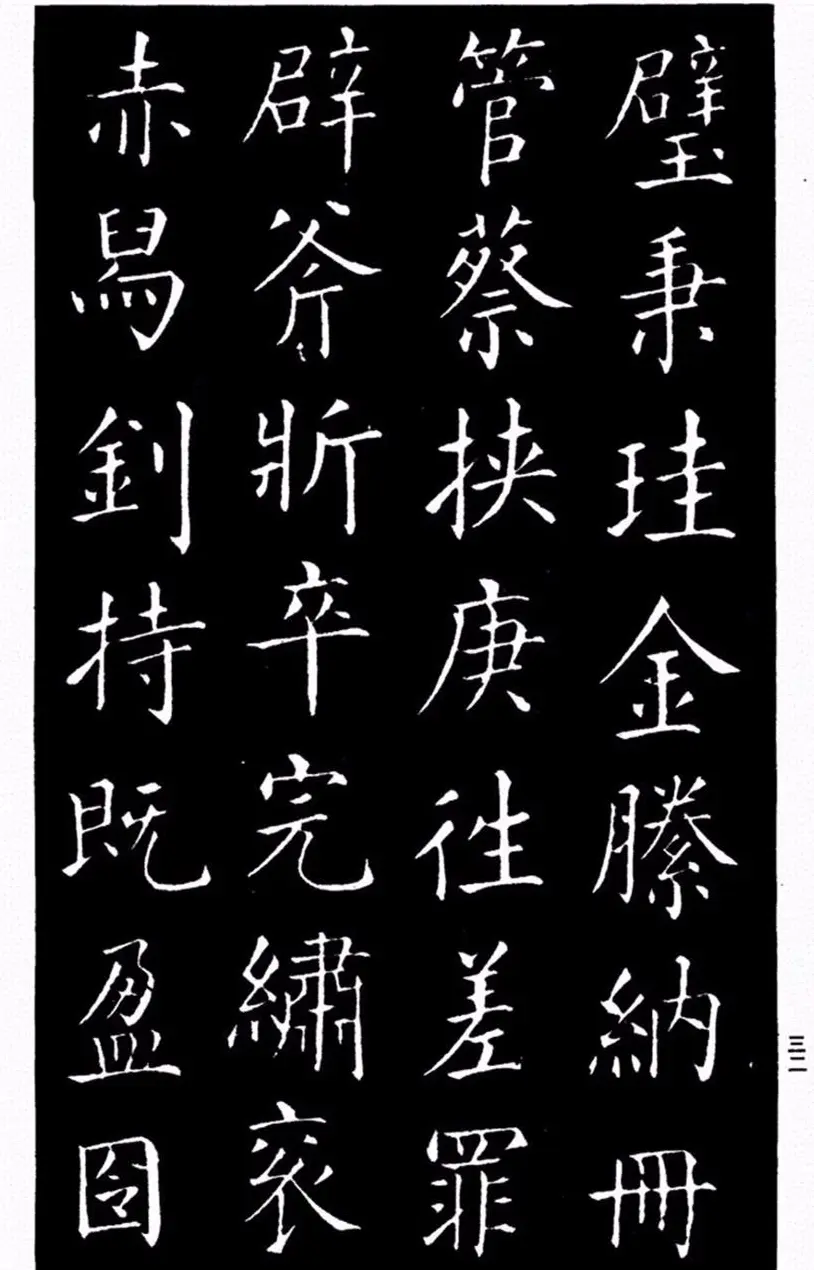 璧秉珪金縢納冊
管蔡挟庚徃差罪
辟斧斨卒完繡衮
赤舄釗持既盈囹